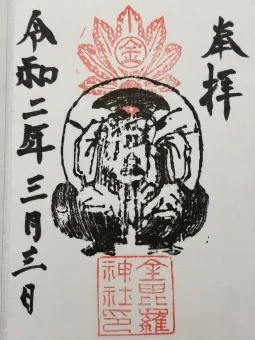 奉拝
金
令和二年三月三日
金毘羅
神社印